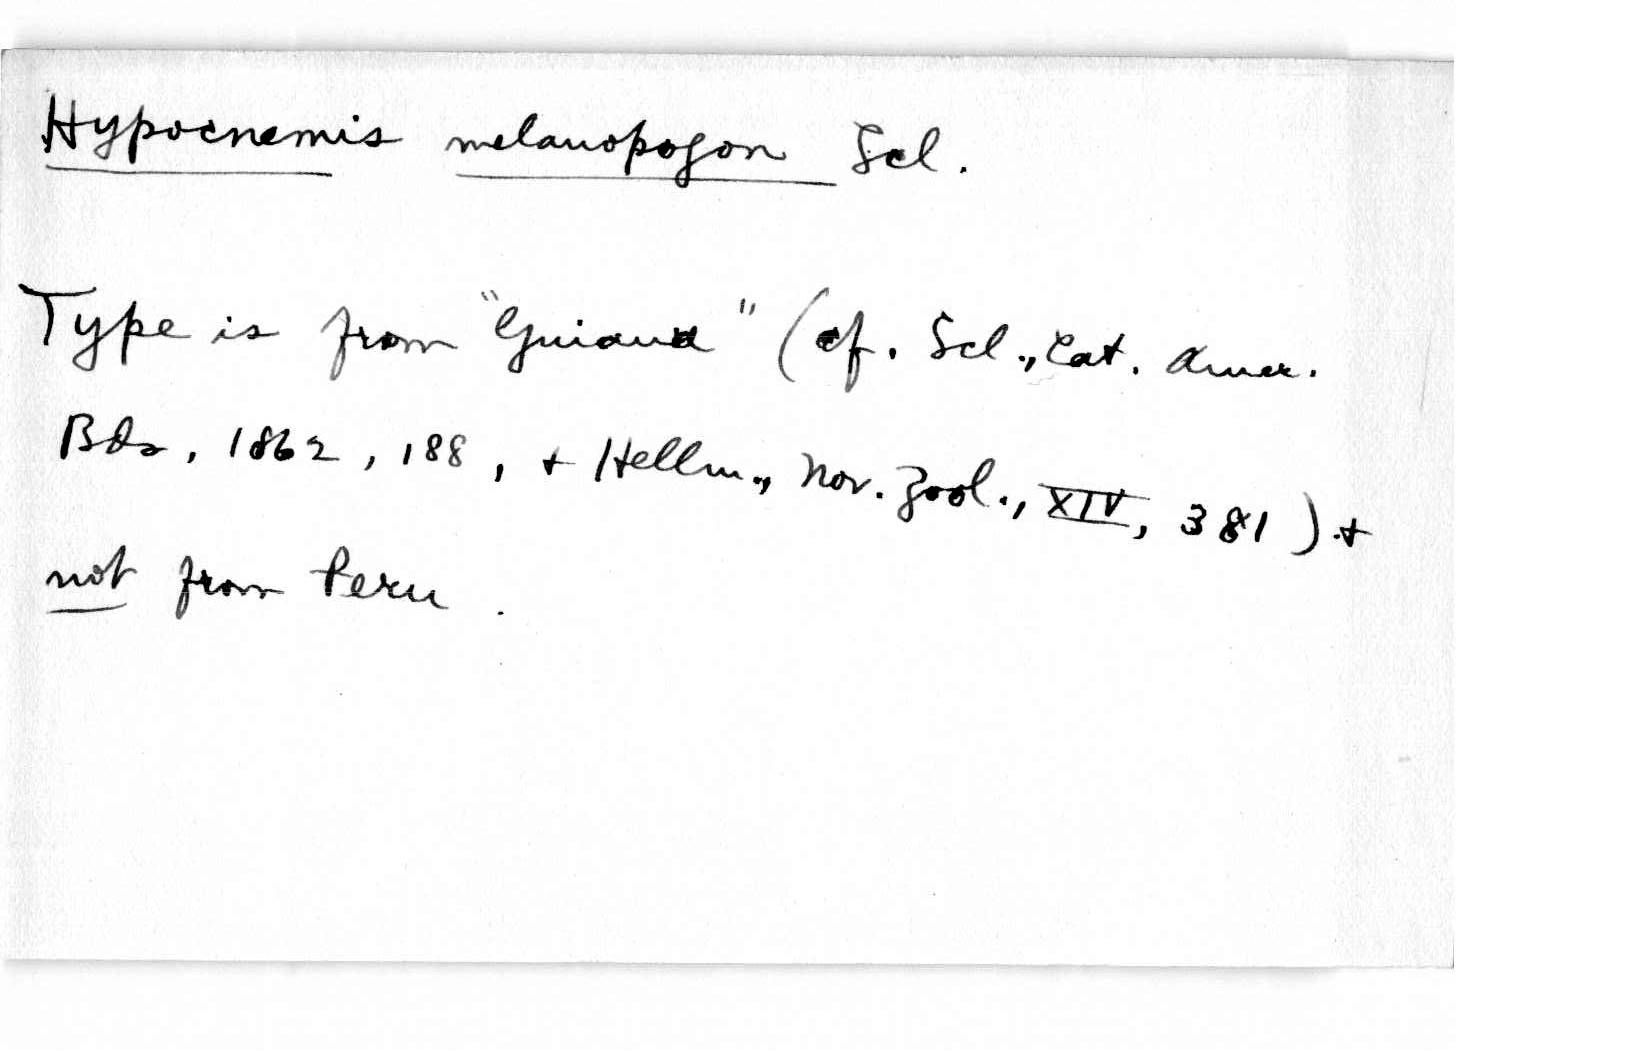 Hypocnemis melanopogon Scl.
Type is from "Guiana" (cf. Scl., Cat. Amer.
Bds, 1862, 188, + Hellm., Nov. Zool., XIV, 381) +
not from Peru.